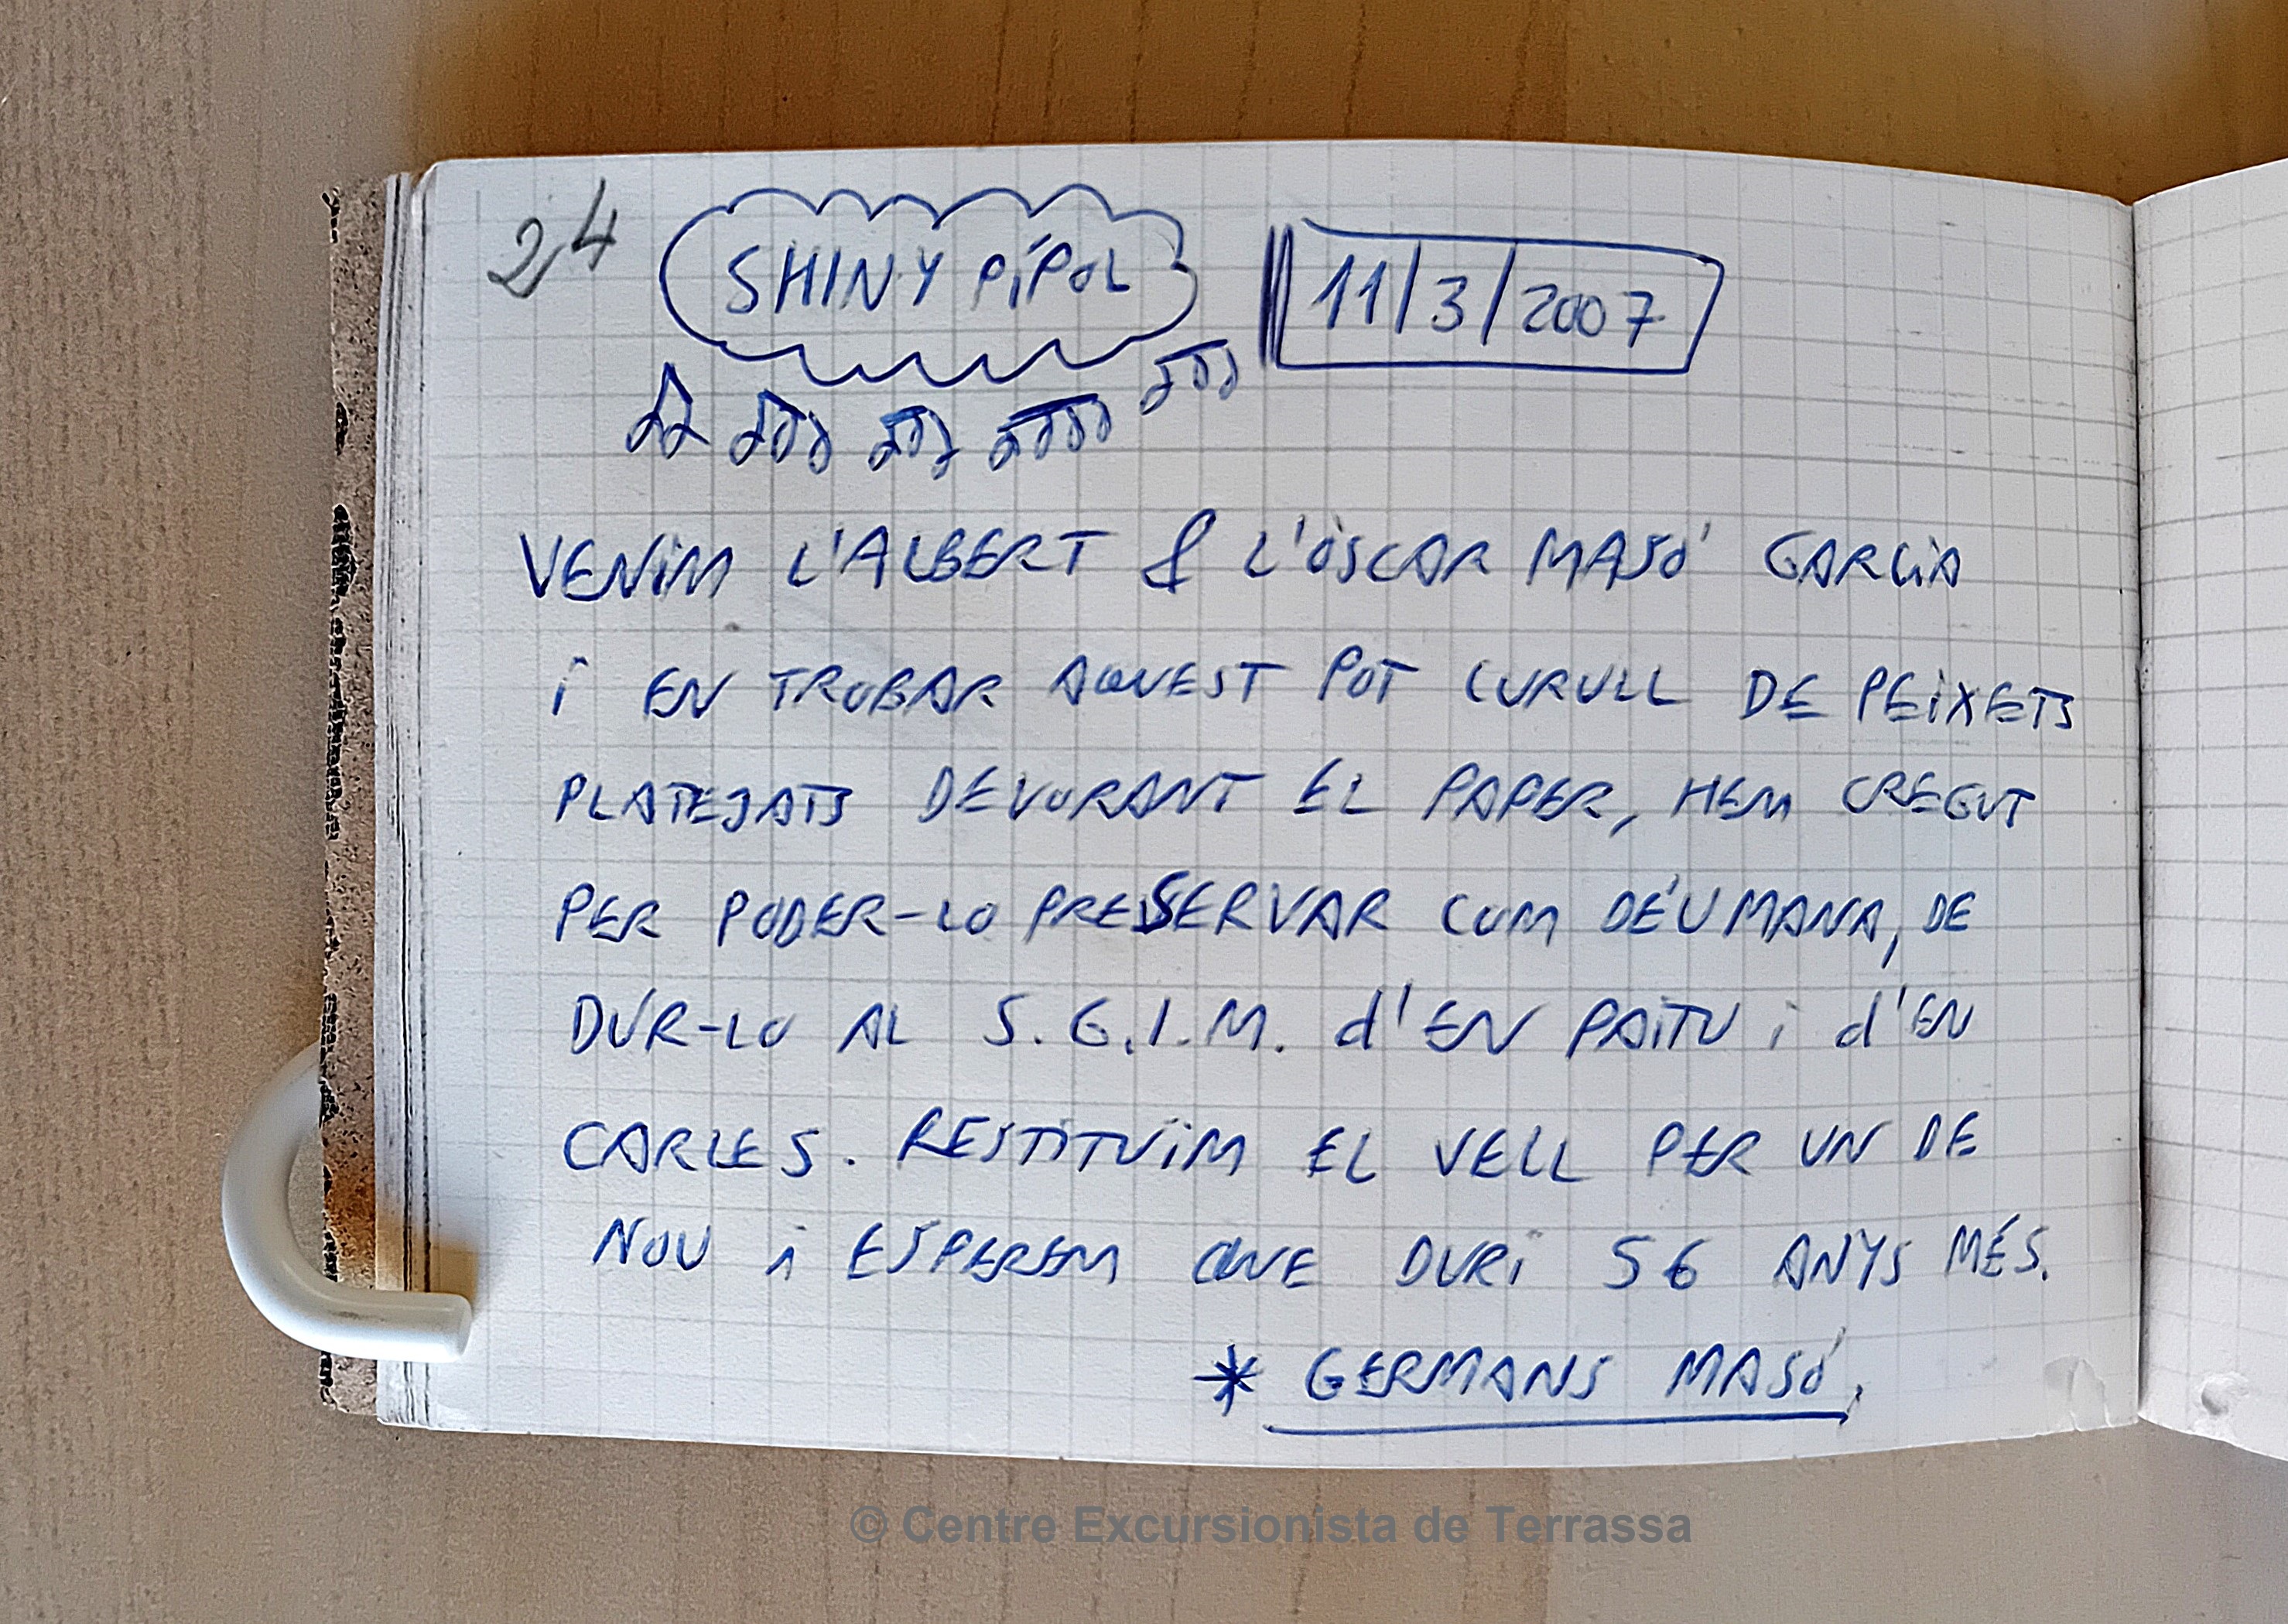 24 SHINY PÍPOL 11/3/2007
VENIM L'ALBERT & L'ÒSCAR MASÓ GARCIA
i EN TROBAR AQUEST POT CURULL DE PEIXETS
PLATEJATS DEVORANT EL PAPER, HEM CREGUT
PER PODER-LO PRESERVAR COM DÉU MANA, DE
DUR-LO AL S.G.I.M. d'EN PAITU i d'EN
CARLES. RESTITUIM EL VELL PER UN DE
NOU i ESPEREM QUE DURI 56 ANYS MÉS.
* GERMANS MASÓ.
© Centre Excursionista de Terrassa